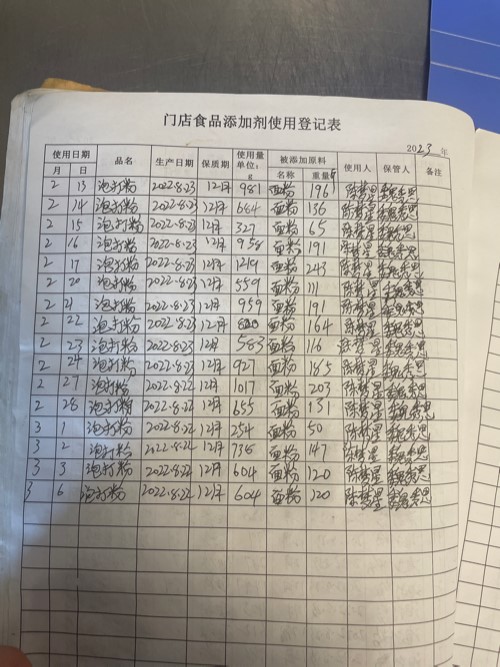 门店食品添加剂使用登记表
2023年
使用日期 品名 生产日期 保质期 使用量单位:g 被添加原料 使用人 保管人 备注
月 日 名称 重量
2 13 泡打粉 2022.8.23 12个月 981 面粉 196 陈梦星
2 14 泡打粉 2022.8.23 12个月 684 面粉 136 陈梦星
2 15 泡打粉 2022.8.23 12个月 327 面粉 65 陈梦星
2 16 泡打粉 2022.8.23 12个月 958 面粉 191 陈梦星
2 17 泡打粉 2022.8.23 12个月 1219 面粉 243 陈梦星
2 20 泡打粉 2022.8.23 12个月 559 面粉 111 陈梦星
2 21 泡打粉 2022.8.23 12个月 959 面粉 191 陈梦星
2 22 泡打粉 2022.8.23 12个月 面粉 164 陈梦星
2 23 泡打粉 2022.8.23 12个月 583 面粉 116 陈梦星
2 24 泡打粉 2022.8.23 12个月 927 面粉 185 陈梦星
2 27 泡打粉 2022.8.22 12个月 1017 面粉 203 陈梦星
2 28 泡打粉 2022.8.22 12个月 655 面粉 131 陈梦星
3 1 泡打粉 2022.8.22 12个月 254 面粉 50 陈梦星
3 2 泡打粉 2022.8.22 12个月 736 面粉 147 陈梦星
3 3 泡打粉 2022.8.22 12个月 604 面粉 120 陈梦星
3 6 泡打粉 2022.8.22 12个月 604 面粉 120 陈梦星